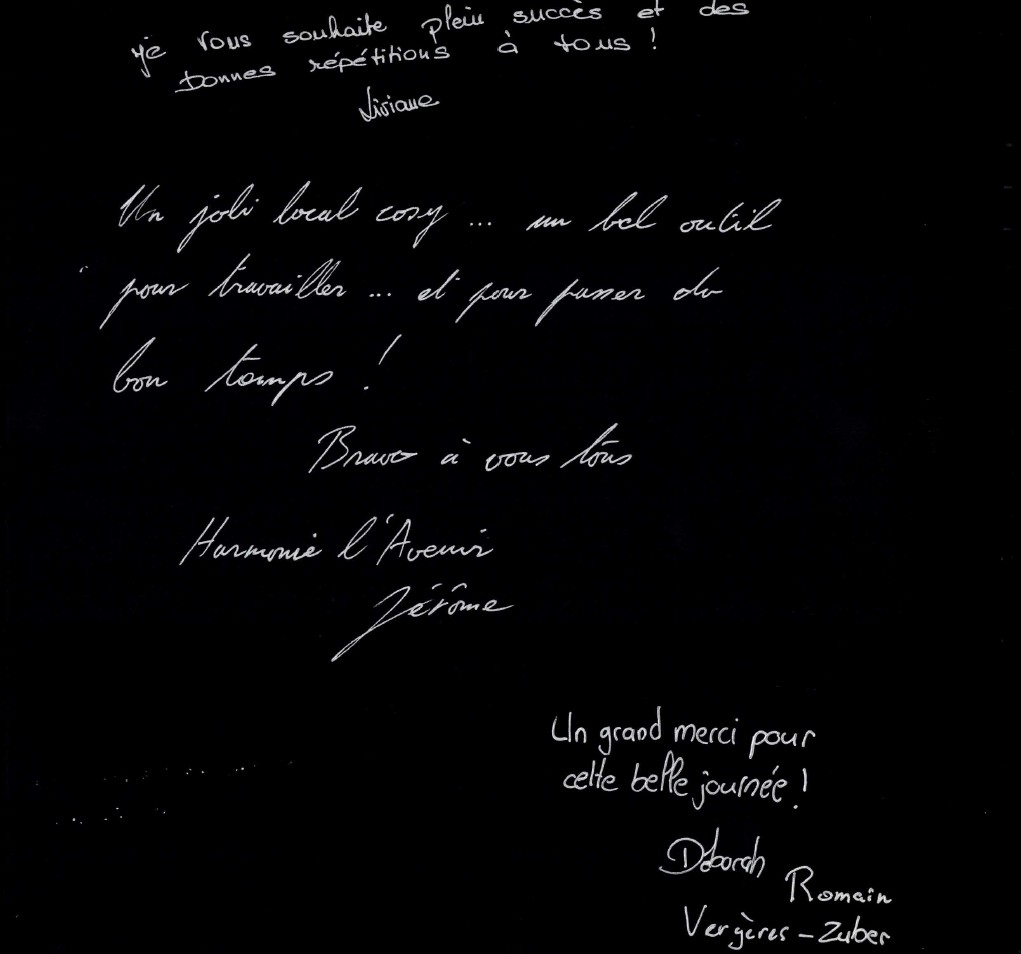 Je vous souhaite plein succès et des
bonnes répétitions à tous !
Liviane
Un joli local cosy ... un bel outil
pour travailler ... et pour passer du
bon temps !
Bravo à vous tous
Harmonie l'Avenir
Jérôme
Un grand merci pour
cette belle journée !
Déborah Romain
Vergères - Zuber